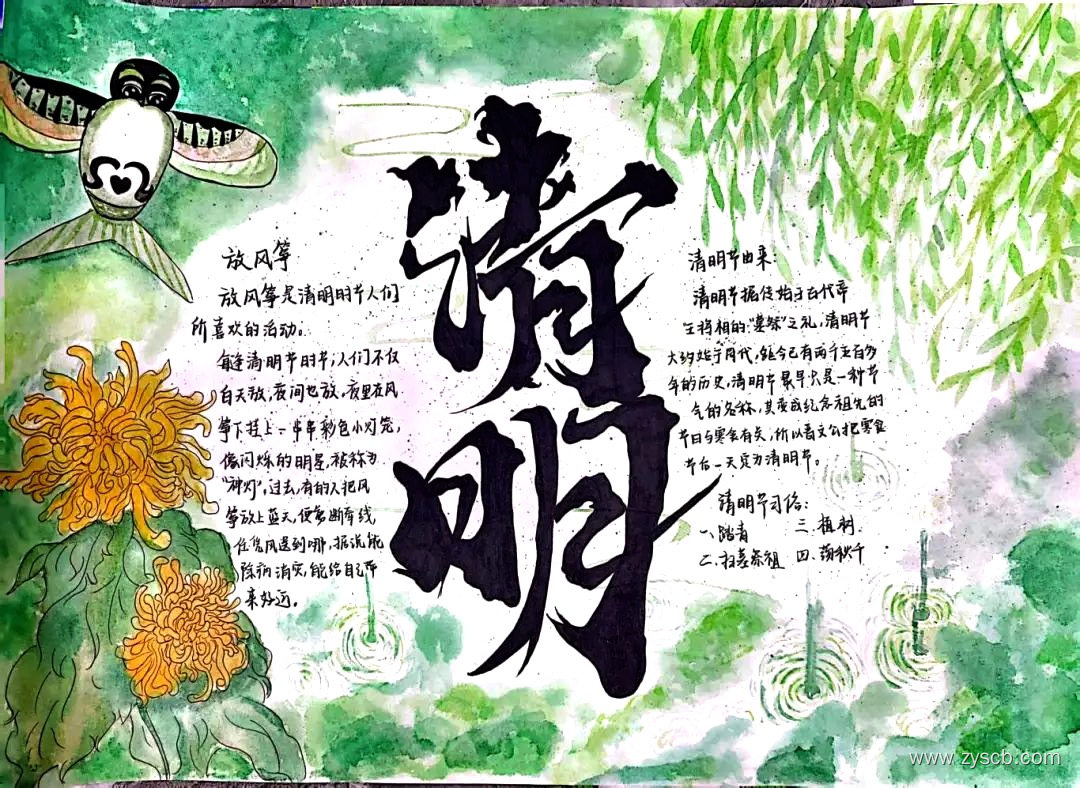 清明
放风筝
放风筝是清明时节人们
所喜欢的活动。
每逢清明节时节,人们不仅
白天放,夜间也放,夜里在风
筝下挂上一串串彩色小灯笼,
像闪烁的明星,被称为
"神灯",过去,有的人把风
筝放上蓝天,便剪断牵线
任凭风送到哪,据说能
除病消灾,能给自己带
来好运。
清明节由来:
清明节据传始于古代帝
王将相的"墓祭"之礼,清明节
大约始于周代,距今已有两千五百多
年的历史,清明节最早只是一种节
气的名称,其变成纪念祖先的
节日与寒食有关,所以晋文公把寒食
节后一天定为清明节。
清明节习俗:
一、踏青 三、植树.
二、扫墓祭祖 四、荡秋千
www.zyscb.com